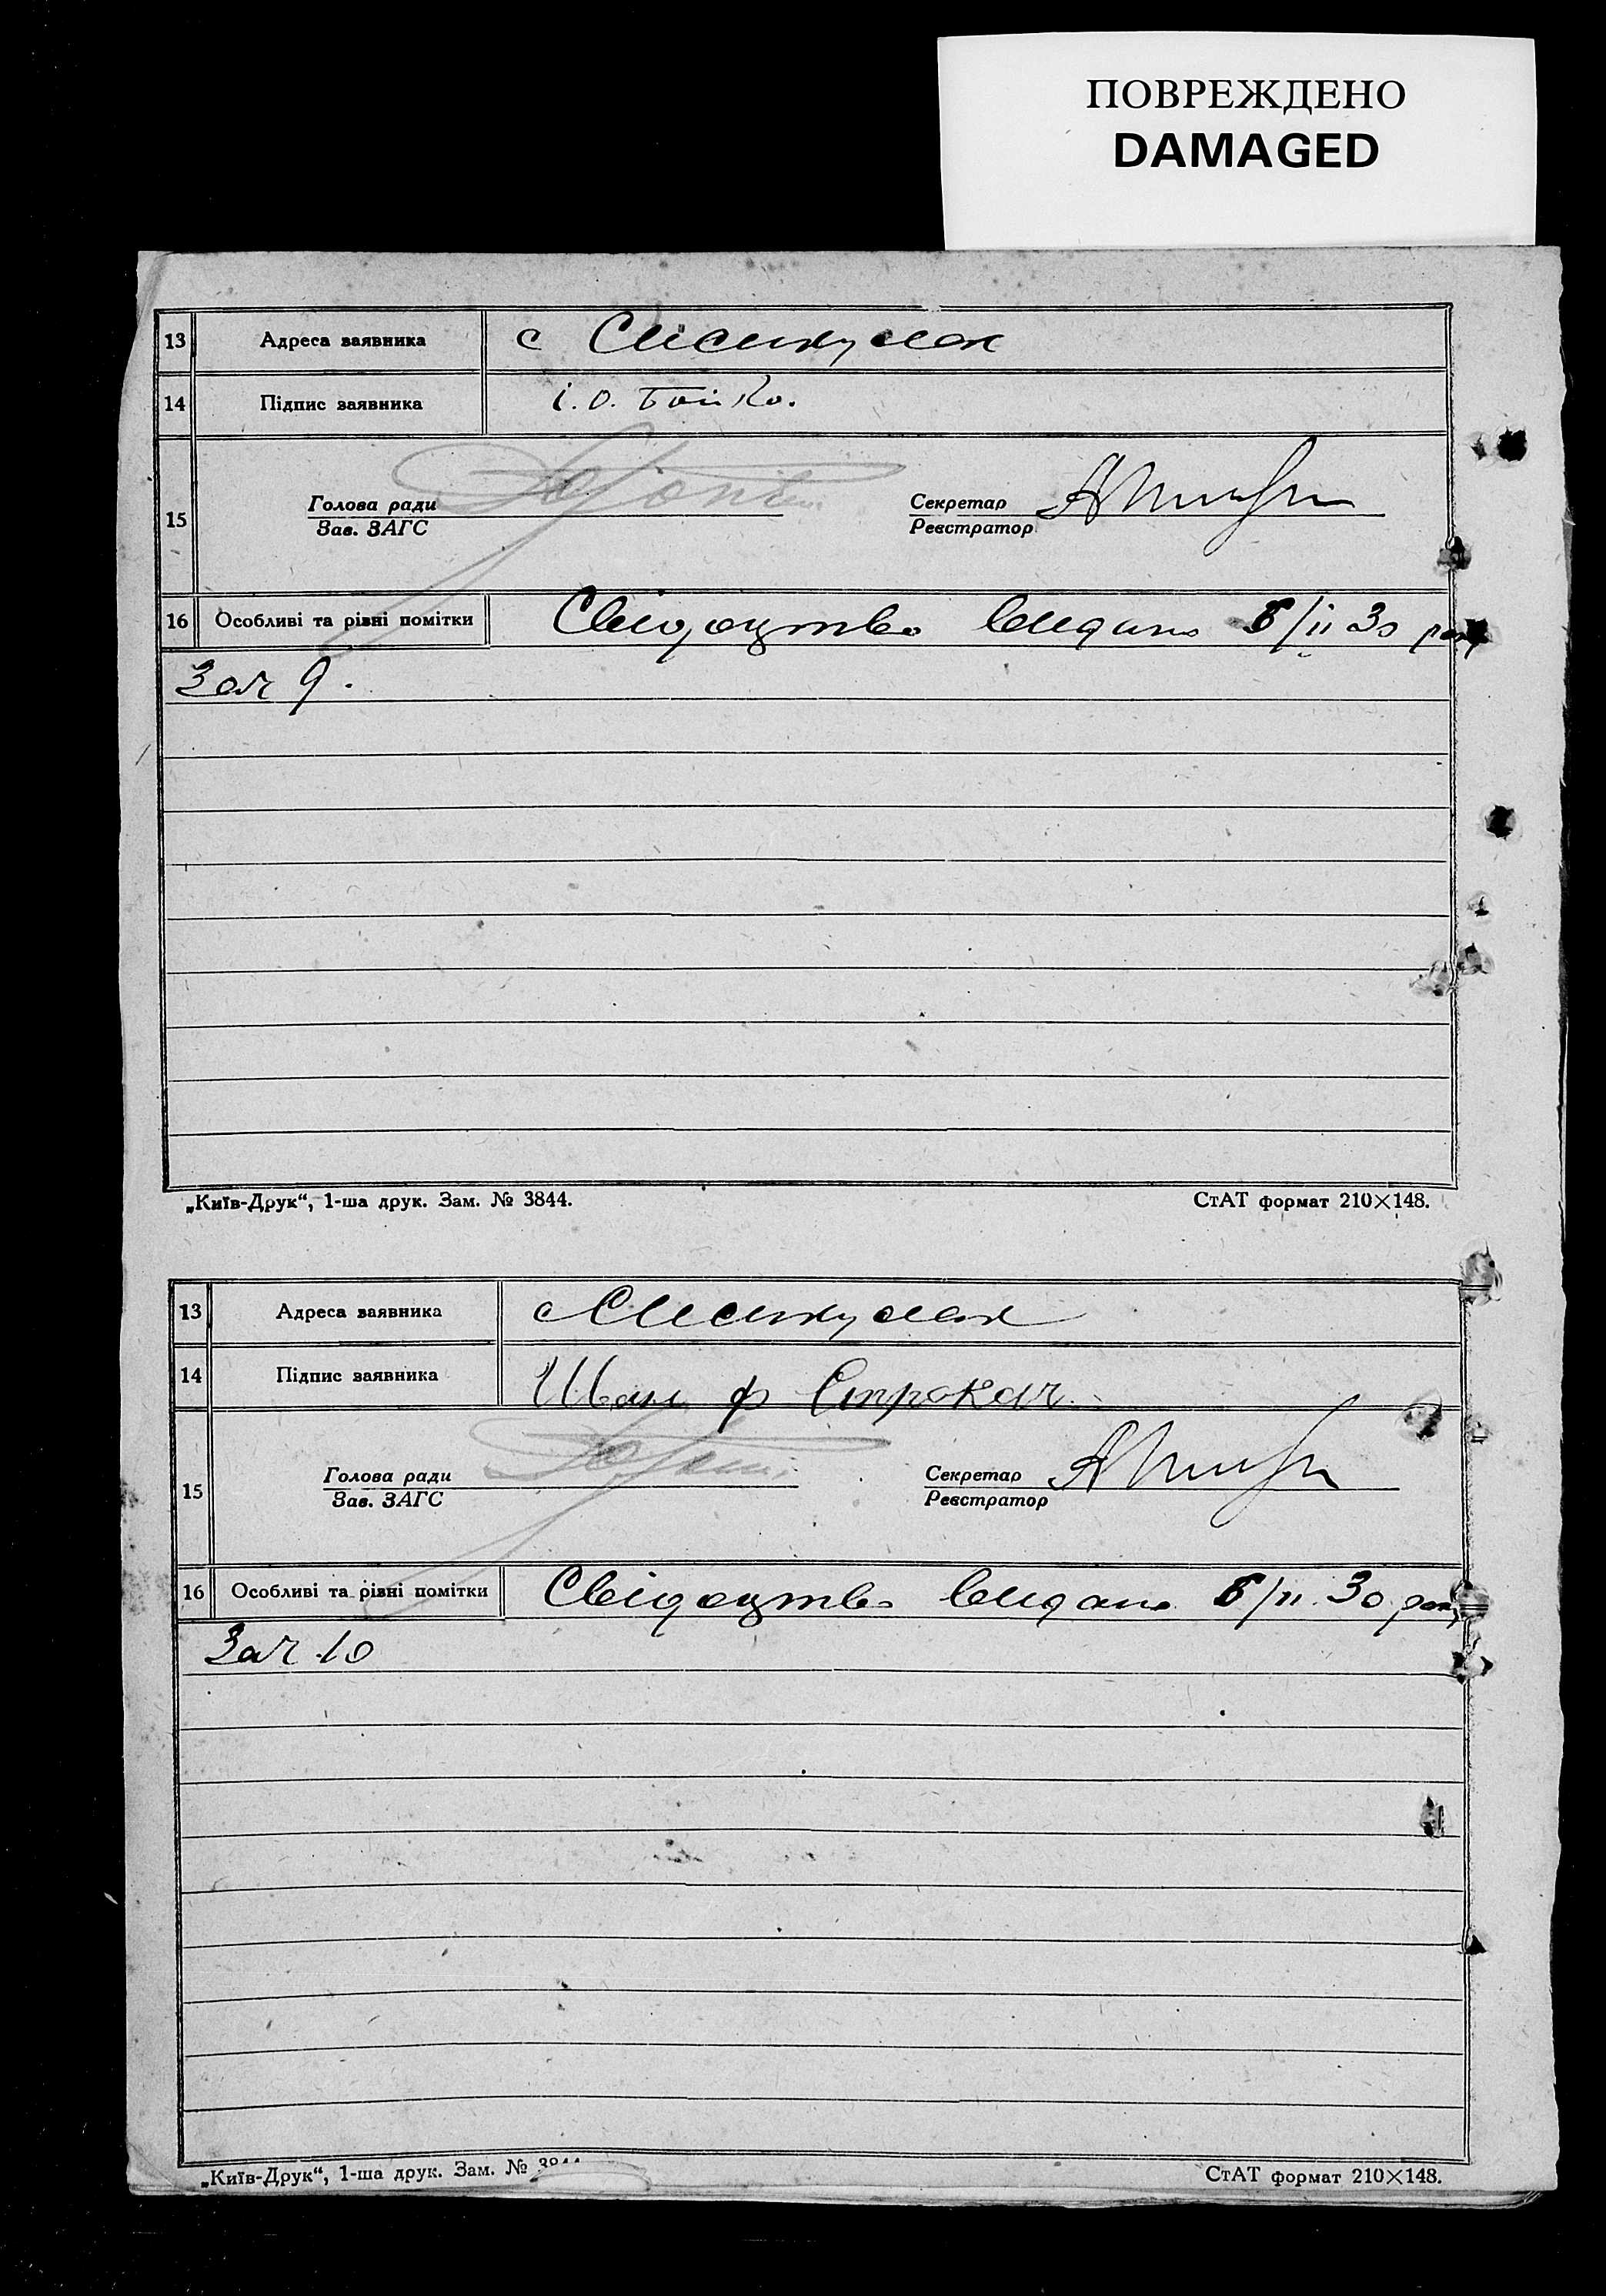 ПОВРЕЖДЕНО
DAMAGED
13 Адреса заявника с
14 Підпис заявника і. О. Бойко.
15 Голова ради Секретар
Зав. ЗАГС Реєстратор
16 Особливі та різні помітки Свідоцтво видано 6/ІІ 30 року
За № 9.
„Київ-Друк“, 1-ша друк. Зам. № 3844. СтАТ формат 210×148.
13 Адреса заявника с
14 Підпис заявника Іван ф Строкач
15 Голова ради Секретар
Зав. ЗАГС Реєстратор
16 Особливі та різні помітки Свідоцтво видано 6/ІІ. 30 року
За № 10
„Київ-Друк“, 1-ша друк. Зам. № СтАТ формат 210×148.